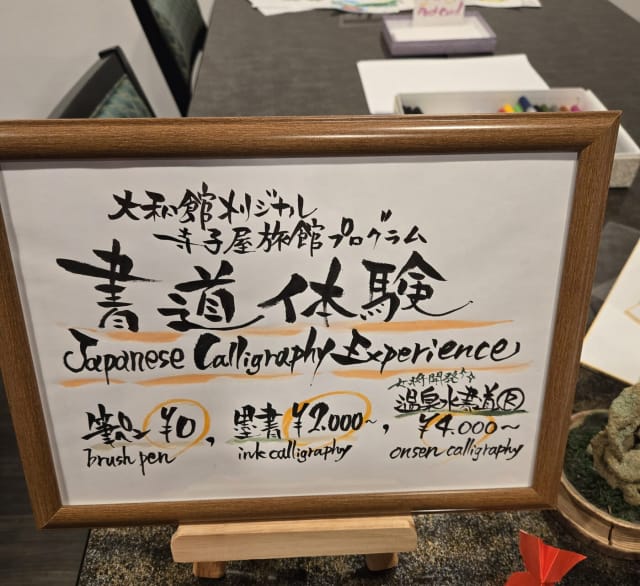 大和館オリジナル
寺子屋旅館プログラム
書道体験
Japanese Calligraphy Experience
女将開発
筆ペン ¥0, 墨書 ¥2.000~, 温泉水書道® ¥4.000~
brush pen ink calligraphy onsen calligraphy